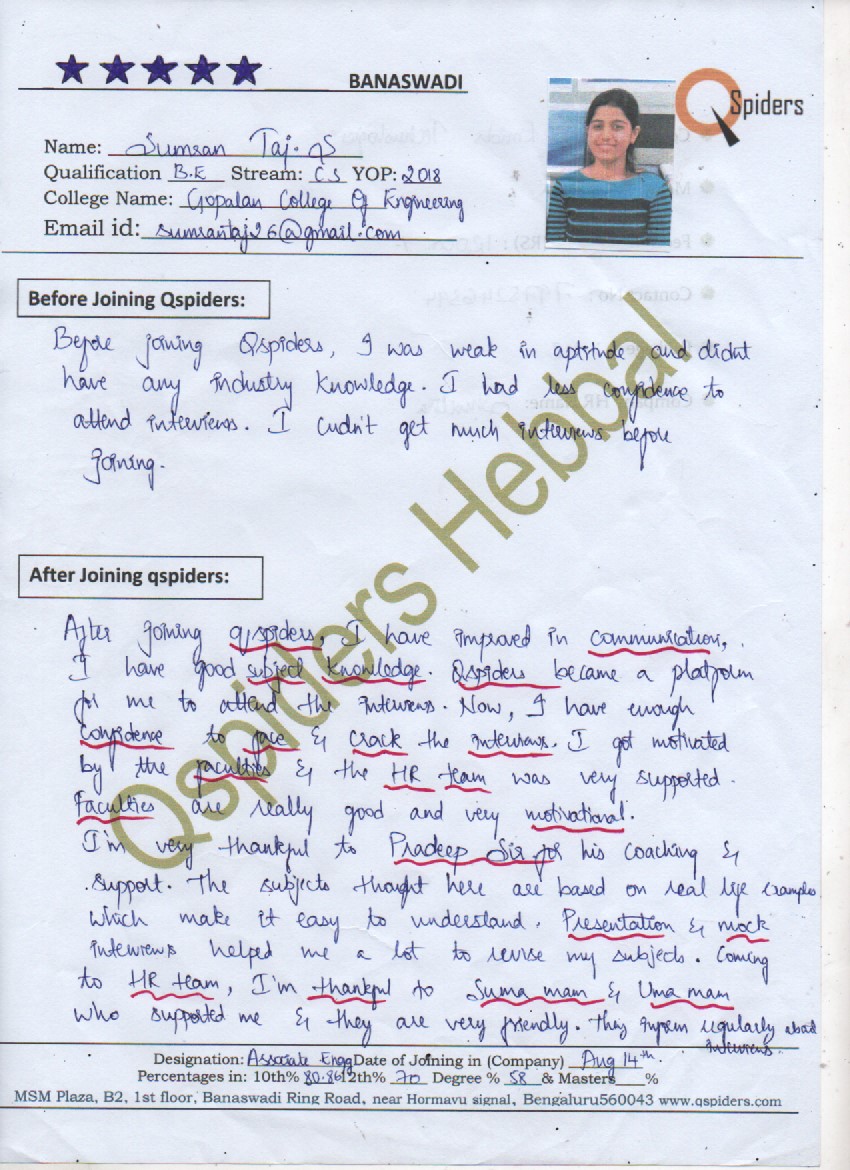 BANASWADI
QSpiders
Name: Sumsan Taj. S
Qualification B.E Stream: CS YOP: 2018
College Name: Gopalan College Of Engineering
Email id: sumsantaj26@gmail.com
Before Joining Qspiders:
Before joining Qspiders, I was weak in aptitude and didnt
have any industry knowledge. I had less confidence to
attend interviews. I cudn't get much interviews before
joining.
Qspiders Hebbal
After Joining qspiders:
After joining qspiders, I have improved in communication,
I have good subject knowledge. Qspiders became a platform
for me to attend the interviews. Now, I have enough
confidence to face & crack the interviews. I got motivated
by the faculties & the HR team was very supported.
Faculties are really good and very motivational.
I'm very thankful to Pradeep Sir for his coaching &
support. The subjects thought here are based on real life examples
which make it easy to understand. Presentation & mock
interviews helped me a lot to revise my subjects. Coming
to HR team, I'm thankful to Suma mam & Uma mam
who supported me & they are very friendly. They inform regularly about
interviews.
Designation: Associate Engg Date of Joining in (Company) Aug 14th.
Percentages in: 10th% 80.86 12th% 70 Degree % 58 & Masters %
MSM Plaza, B2, 1st floor, Banaswadi Ring Road, near Hormavu signal, Bengaluru560043 www.qspiders.com